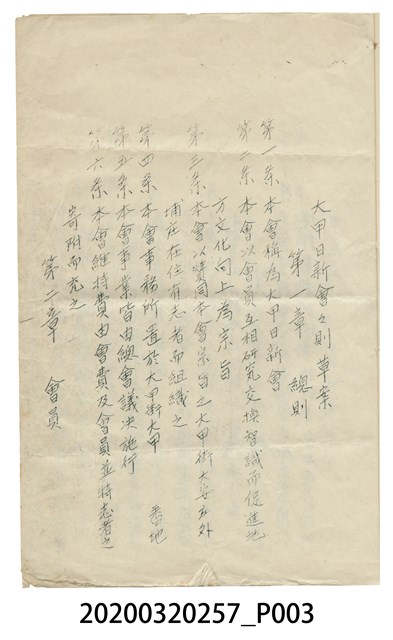 大甲日新會々則草案
第一章 總則
第一条 本會稱為大甲日新會
第二条 本會以會員互相研究交換智識而促進地
方文化向上為宗旨
第三条 本會以賛同本會宗旨之大甲街大安庄外
埔庄在住有志者而組織之
第四条 本會事務所置於大甲街大甲 番地
第五条 本會事業皆由總會議決施行
第六条 本會維持費由會費及會員並特志者之
寄附而充之
第二章 會員
20200320257_P003